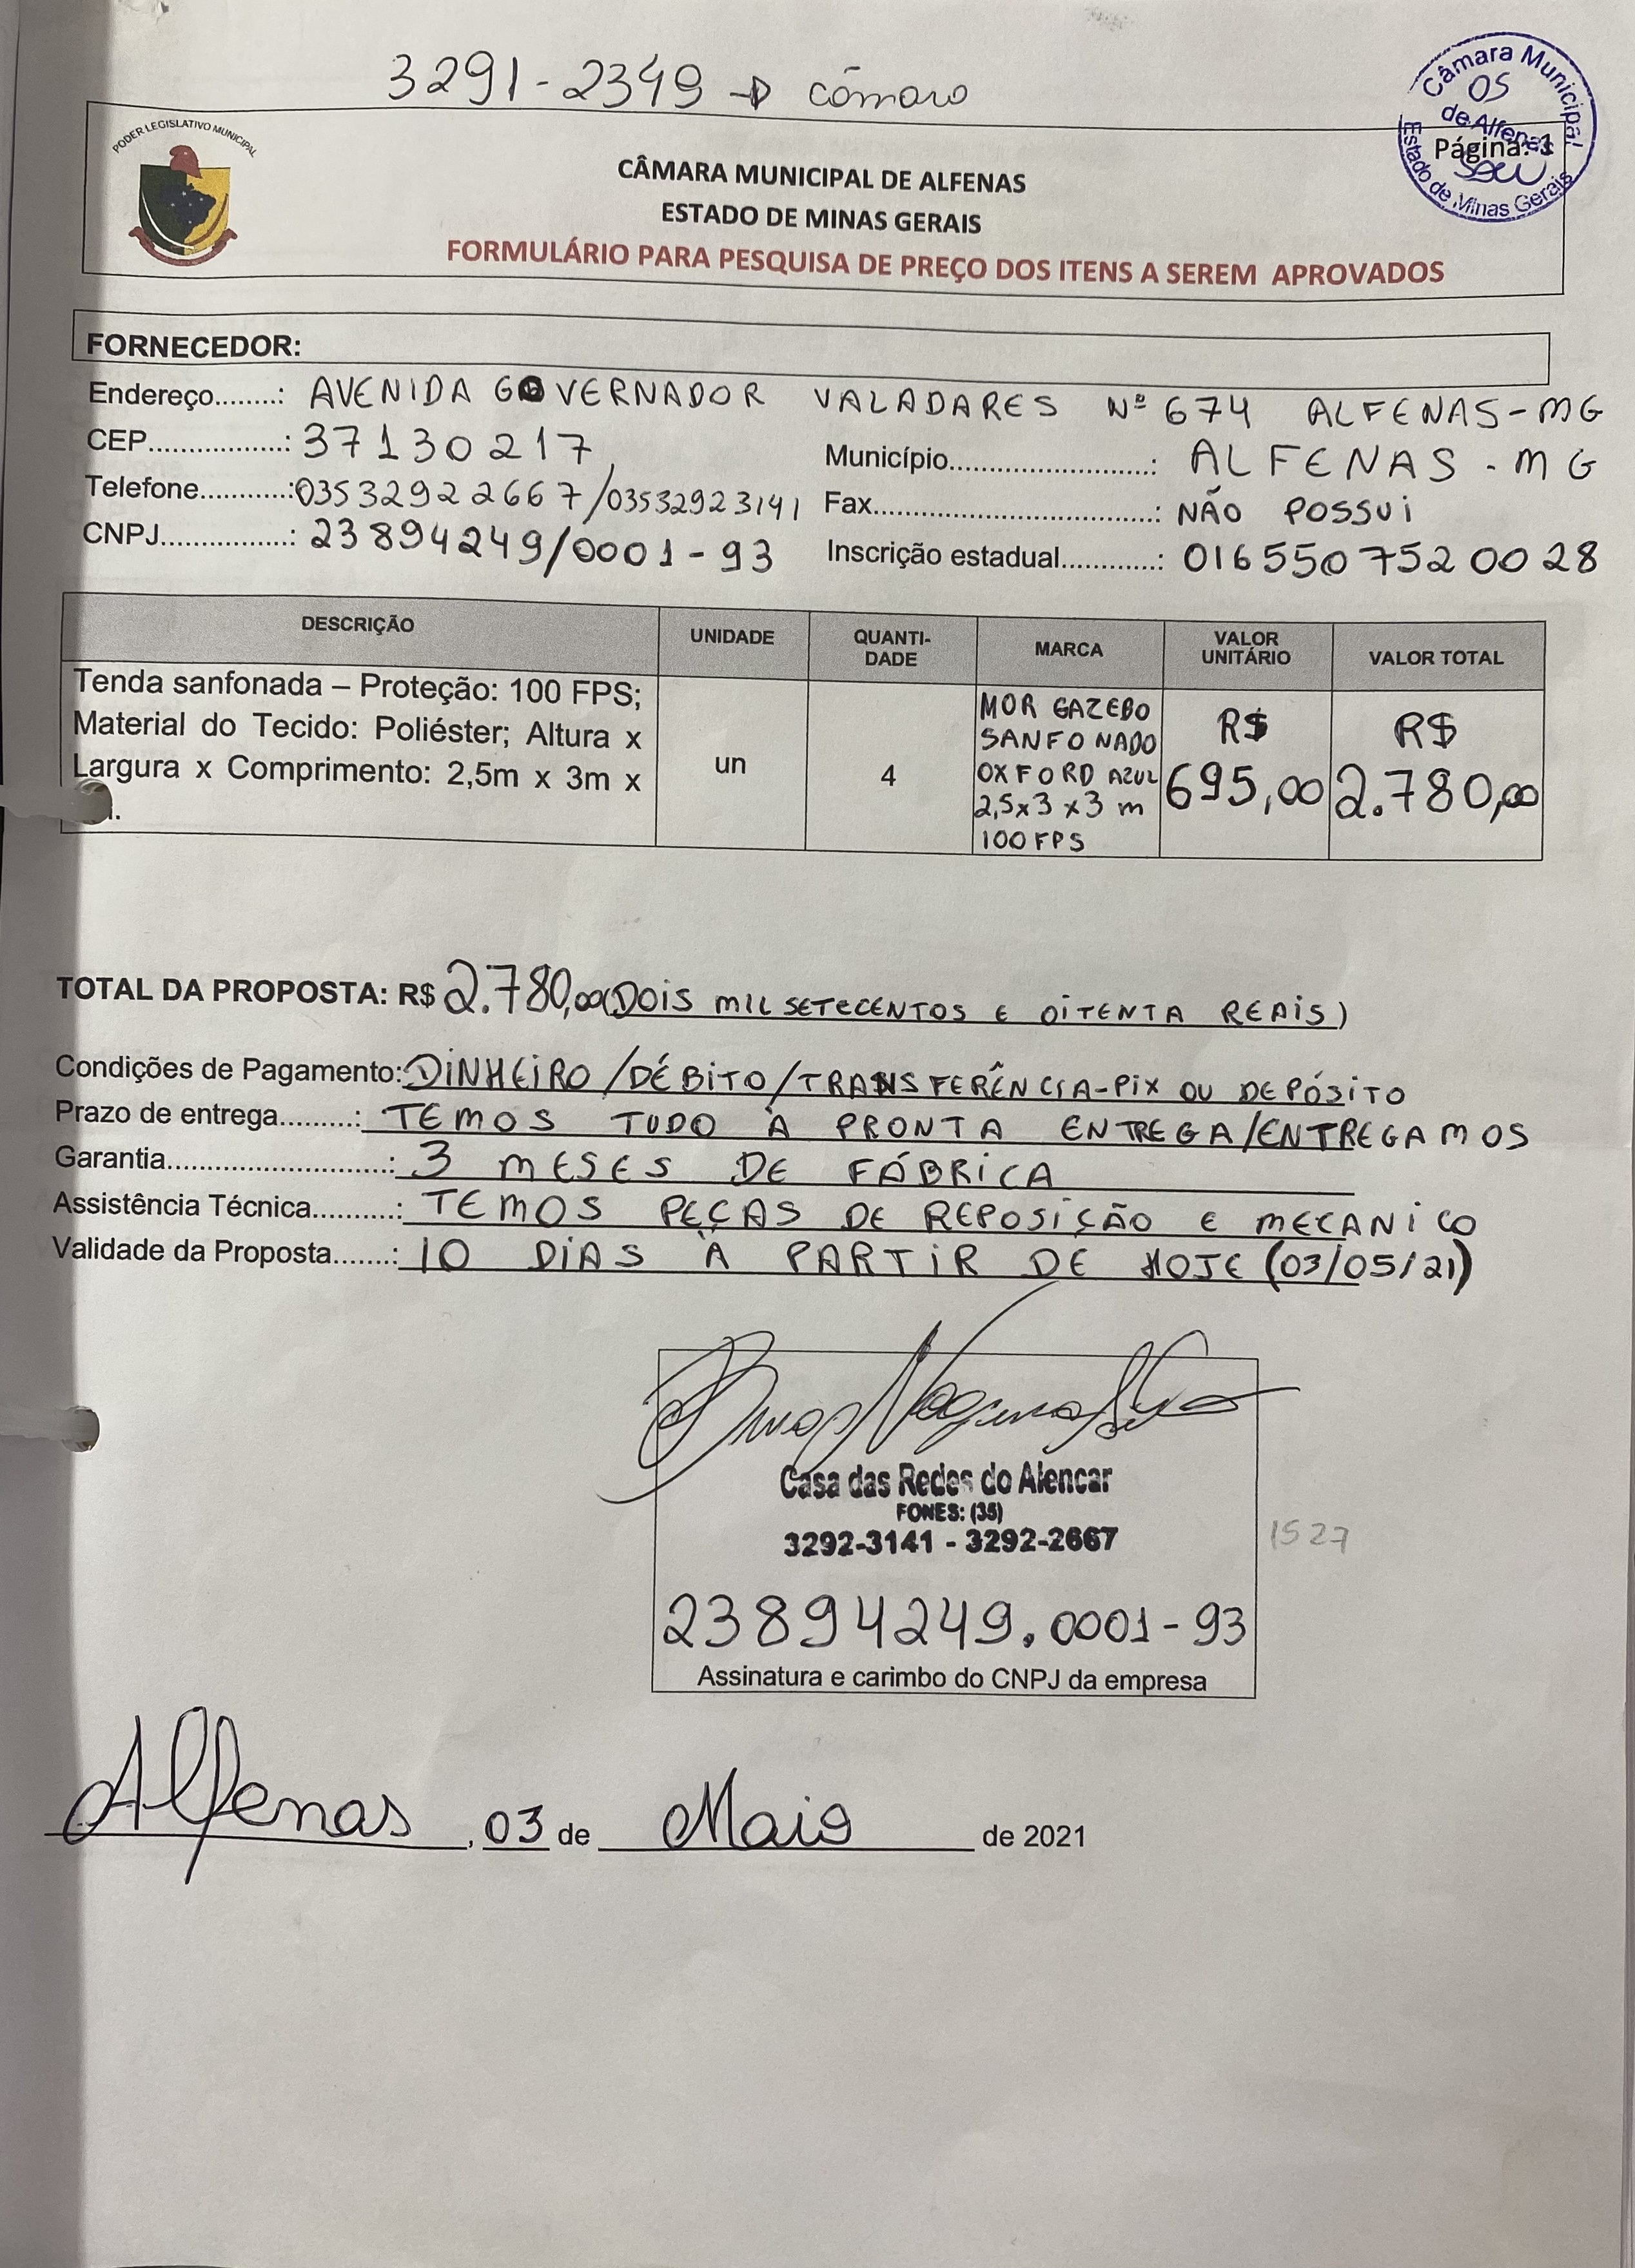 3291-2349 → câmara
Câmara Municipal
05
de Alfenas
Estado de Minas Gerais
Página: 1
PODER LEGISLATIVO MUNICIPAL
CÂMARA MUNICIPAL DE ALFENAS
ESTADO DE MINAS GERAIS
FORMULÁRIO PARA PESQUISA DE PREÇO DOS ITENS A SEREM APROVADOS
FORNECEDOR:
Endereço........: AVENIDA GOVERNADOR VALADARES Nº 674 ALFENAS-MG
CEP.................: 37130217 Município..........................: ALFENAS - MG
Telefone...........: 03532922667/03532923141 Fax.....................................: NÃO POSSUI
CNPJ................: 23894249/0001-93 Inscrição estadual............: 0165507520028
DESCRIÇÃO UNIDADE QUANTI-DADE MARCA VALOR UNITÁRIO VALOR TOTAL
Tenda sanfonada – Proteção: 100 FPS;
Material do Tecido: Poliéster; Altura x
Largura x Comprimento: 2,5m x 3m x
un
4
MOR GAZEBO
SANFONADO
OXFORD AZUL
2,5x3x3 m
100 FPS
R$
695,00
R$
2.780,00
TOTAL DA PROPOSTA: R$ 2.780,00 (DOIS MIL SETECENTOS E OITENTA REAIS)
Condições de Pagamento: DINHEIRO/DÉBITO/TRANSFERÊNCIA-PIX OU DEPÓSITO
Prazo de entrega.........: TEMOS TUDO À PRONTA ENTREGA/ENTREGAMOS
Garantia.........................: 3 MESES DE FÁBRICA
Assistência Técnica..........: TEMOS PEÇAS DE REPOSIÇÃO E MECANICO
Validade da Proposta.......: 10 DIAS À PARTIR DE HOJE (03/05/21)
Casa das Redes do Alencar
FONES: (35)
3292-3141 - 3292-2667
1527
23894249.0001-93
Assinatura e carimbo do CNPJ da empresa
Alfenas, 03 de Maio de 2021